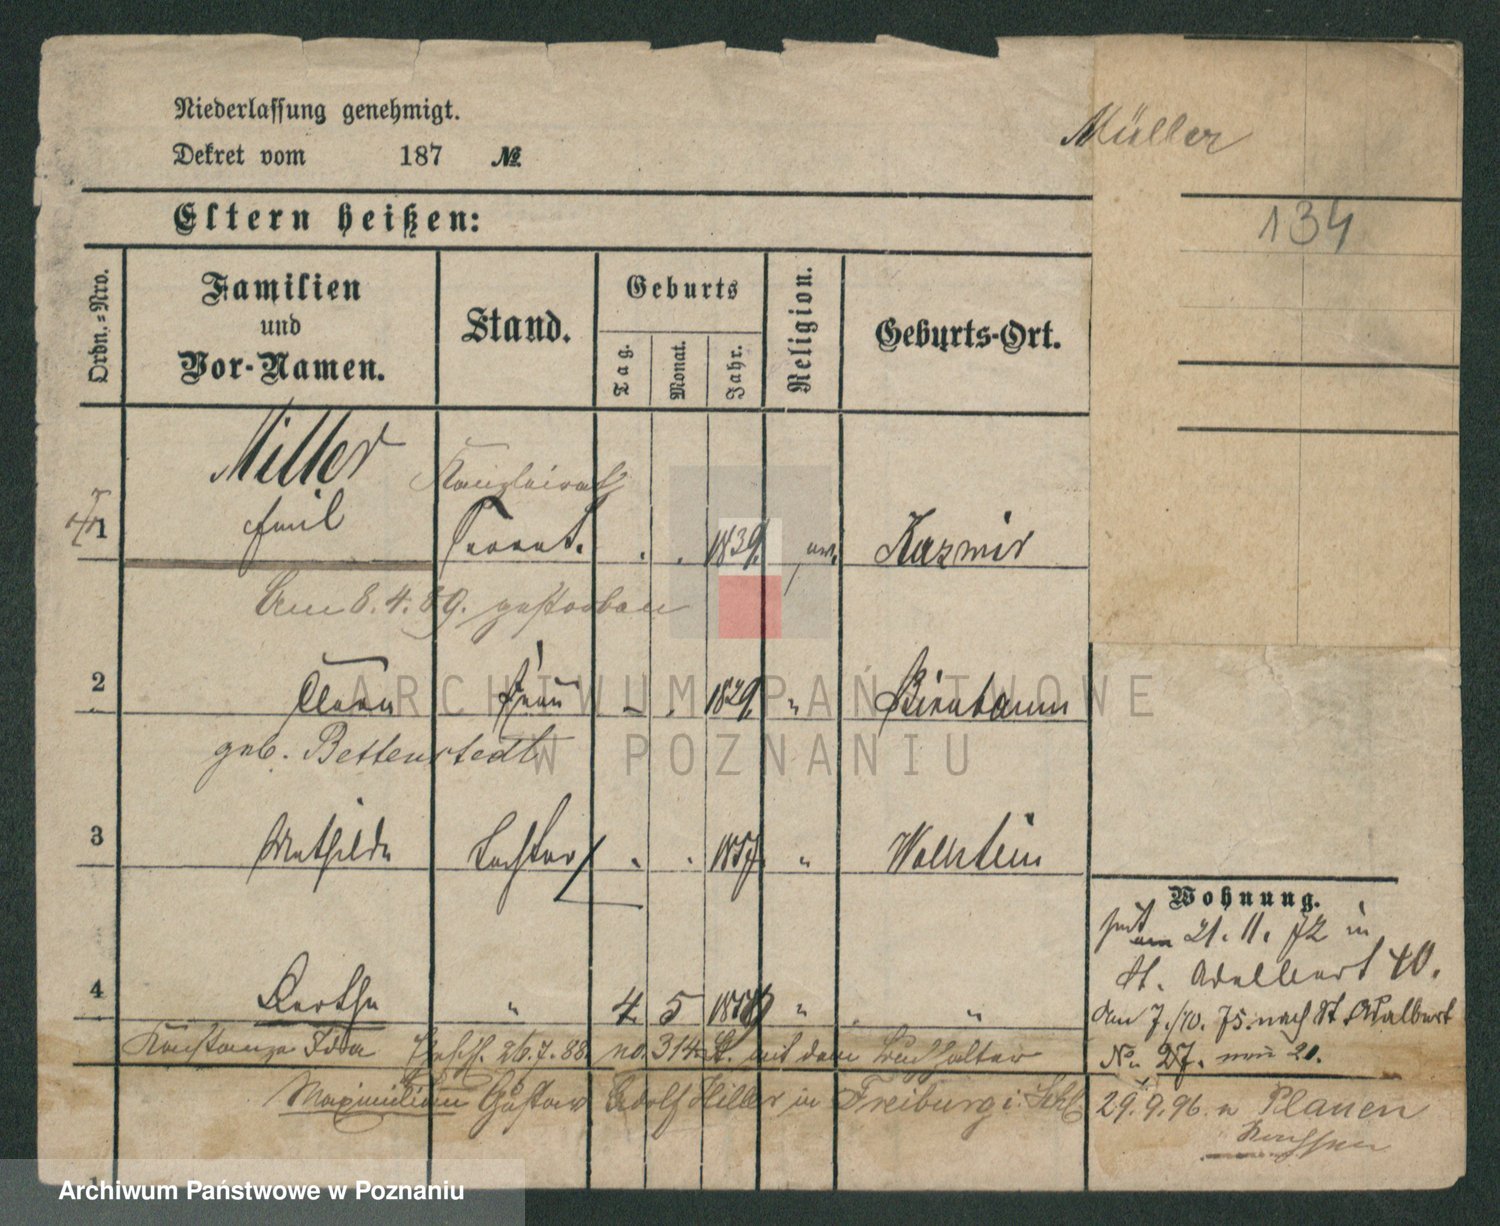 Niederlassung genehmigt.
Dekret vom 187 №
Müller
134
Eltern heißen:
Ordn.=Nro.
Familien
und
Vor-Namen.
Stand.
Geburts
Tag.
Monat.
Jahr.
Religion.
Geburts-Ort.
Miller
Kanzleirath
1 Emil 1839. ev. Kazmir
Am 8.4.89. gestorben
2 Clara Frau 1829. " Birnbaum
geb. Bettenstedt
3 Mathilde Tochter 1857. " Wollstein
4 Berthe " 4. 5 " "
Konstanze Ida Gesch. 26.7.88. no. 314. St. mit dem Buchhalter
Maximilian Gustav Adolf Hiller in Freiburg i. Schl.
Wohnung.
seit 21. 11. 72 in
St. Adalbert 40.
am 7./10. 75. nach St. Adalbert
No. 27. 21.
29.9.96. n Plauen
Sachsen
ARCHIWUM PAŃSTWOWE
W POZNANIU
Archiwum Państwowe w Poznaniu